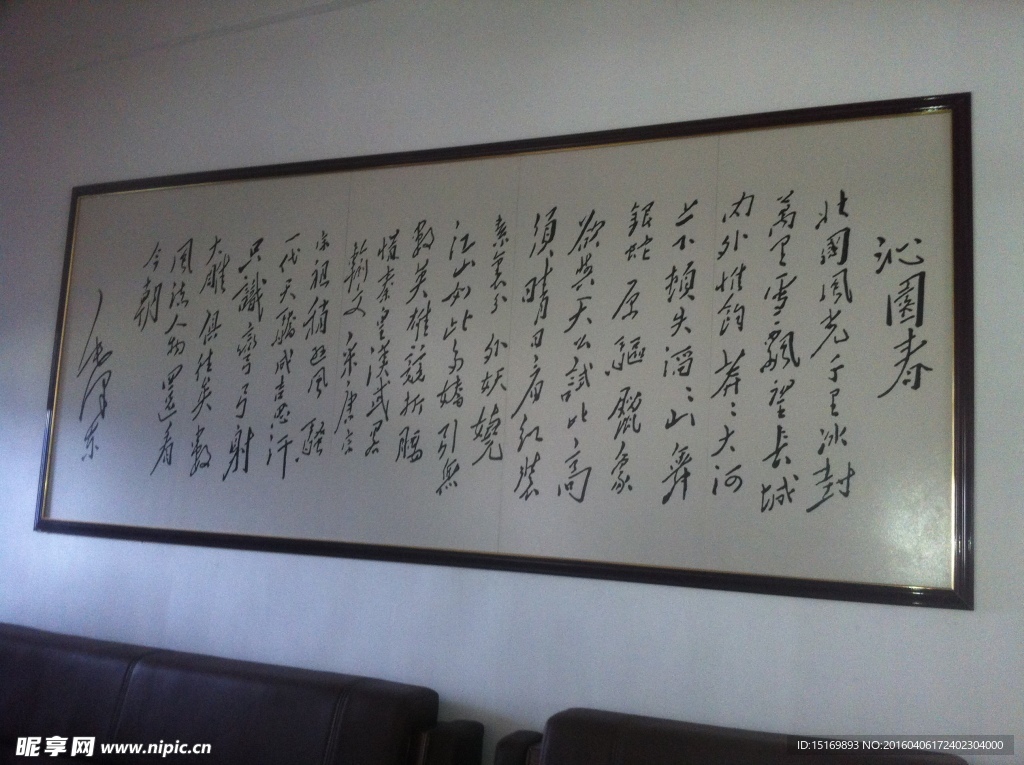 沁園春
北國風光千里冰封
萬里雪飄望長城
内外惟餘莽〻大河
上下頓失滔〻山舞
銀蛇原驅臘象
欲與天公試比高
須晴日看紅裝
素裹分外妖嬈
江山如此多嬌引無
數英雄競折腰
惜秦皇漢武略
輸文采唐宗
宋祖稍遜風騷
一代天驕成吉思汗
只識彎弓射
大雕俱往矣數
風流人物還看
今朝
毛澤東
昵享网 www.nipic.cn
ID:15169893 NO:20160406172402304000